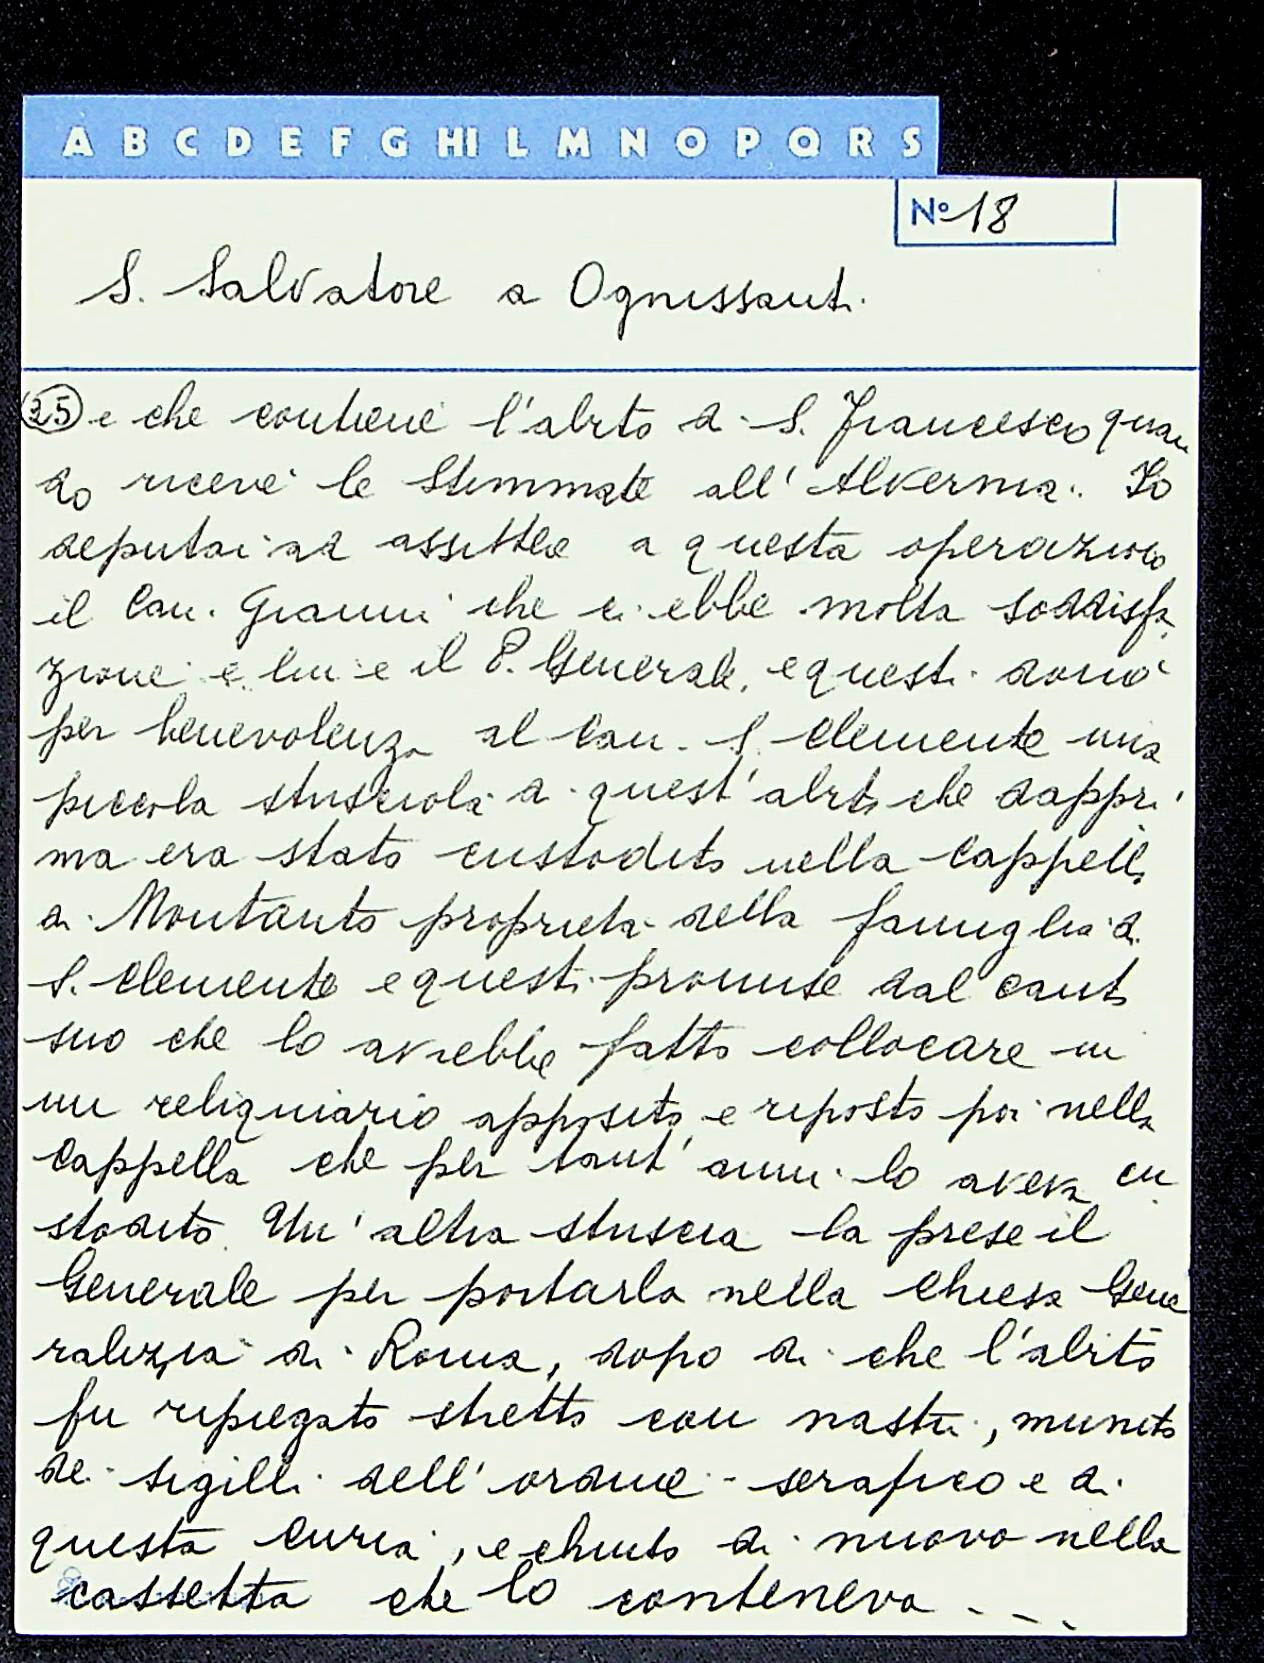 A B C D E F G HI L M N O P Q R S
Nº 18
S. Salvatore a Ognissanti.
(25) e che contiene l'abito di S. Francesco quan
do ricevè le Stimmate all'Alvernia. Io
deputai ad assistere a questa operazione
il Can. Gianni che ci ebbe molta soddisfa
zione e lui e il P. Generale, e questi donò
per benevolenza al Can. S. Clemente una
piccola strisciola di quest'abito che dappri
ma era stato custodito nella Cappella
di Montauto proprietà della famiglia di
S. Clemente e questi promise dal canto
suo che lo avrebbe fatto collocare in
un reliquiario apposito, e riposto poi nella
Cappella che per tant'anni lo aveva cu
stodito. Un'altra striscia la prese il
Generale per portarla nella Chiesa Gene
ralizia di Roma, dopo di che l'abito
fu ripiegato stretto con nastri, munito
dei sigilli dell'ordine serafico e di
questa Curia, e chiuso di nuovo nella
cassetta che lo conteneva ----